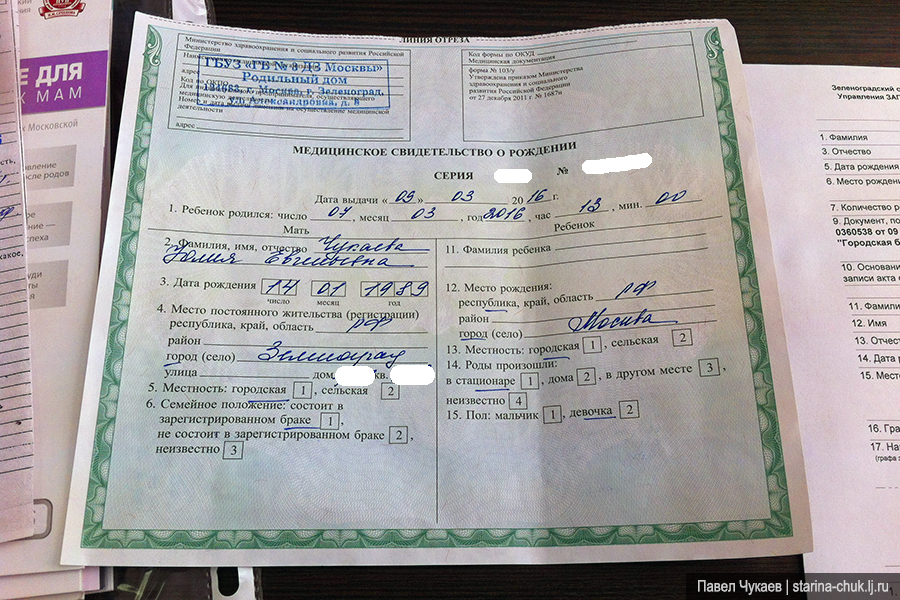 Е ДЛЯ
Х МАМ
Московской
ЛИНИЯ ОТРЕЗА
Министерство здравоохранения и социального развития Российской
Федерации
ГБУЗ «ГБ № 3 ДЗ Москвы»
Родильный дом
г. Москва, г. Зеленоград,
ул. Александровка, д. 8
адрес
Код формы по ОКУД
Медицинская документация
форма № 103/у
Утверждена приказом Министерства
здравоохранения и социального
развития Российской Федерации
от 27 декабря 2011 г. № 1687н
МЕДИЦИНСКОЕ СВИДЕТЕЛЬСТВО О РОЖДЕНИИ
СЕРИЯ №
Дата выдачи «09» 03 2016 г.
1. Ребенок родился: число 07, месяц 03, год 2016, час 13, мин. 00
Мать
2. Фамилия, имя, отчество Чукаева
Юлия Евгеньевна
3. Дата рождения 14 01 1989
число месяц год
4. Место постоянного жительства (регистрации)
республика, край, область РФ
район
город (село) Зеленоград
улица дом кв.
5. Местность: городская 1, сельская 2
6. Семейное положение: состоит в
зарегистрированном браке 1,
не состоит в зарегистрированном браке 2,
неизвестно 3
Ребенок
11. Фамилия ребенка
12. Место рождения:
республика, край, область РФ
район
город (село) Москва
13. Местность: городская 1, сельская 2
14. Роды произошли:
в стационаре 1, дома 2, в другом месте 3,
неизвестно 4
15. Пол: мальчик 1, девочка 2
Зеленоградский
Управления ЗАГ
1. Фамилия
3. Отчество
5. Дата рождения
6. Место рождени
7. Количество р
9. Документ, по
0360538 от 09
"Городская б
10. Основани
записи акта
11. Фамили
12. Имя
13. Отчест
14. Дата р
15. Место
16. Гра
17. На
(графа з
Павел Чукаев | starina-chuk.lj.ru